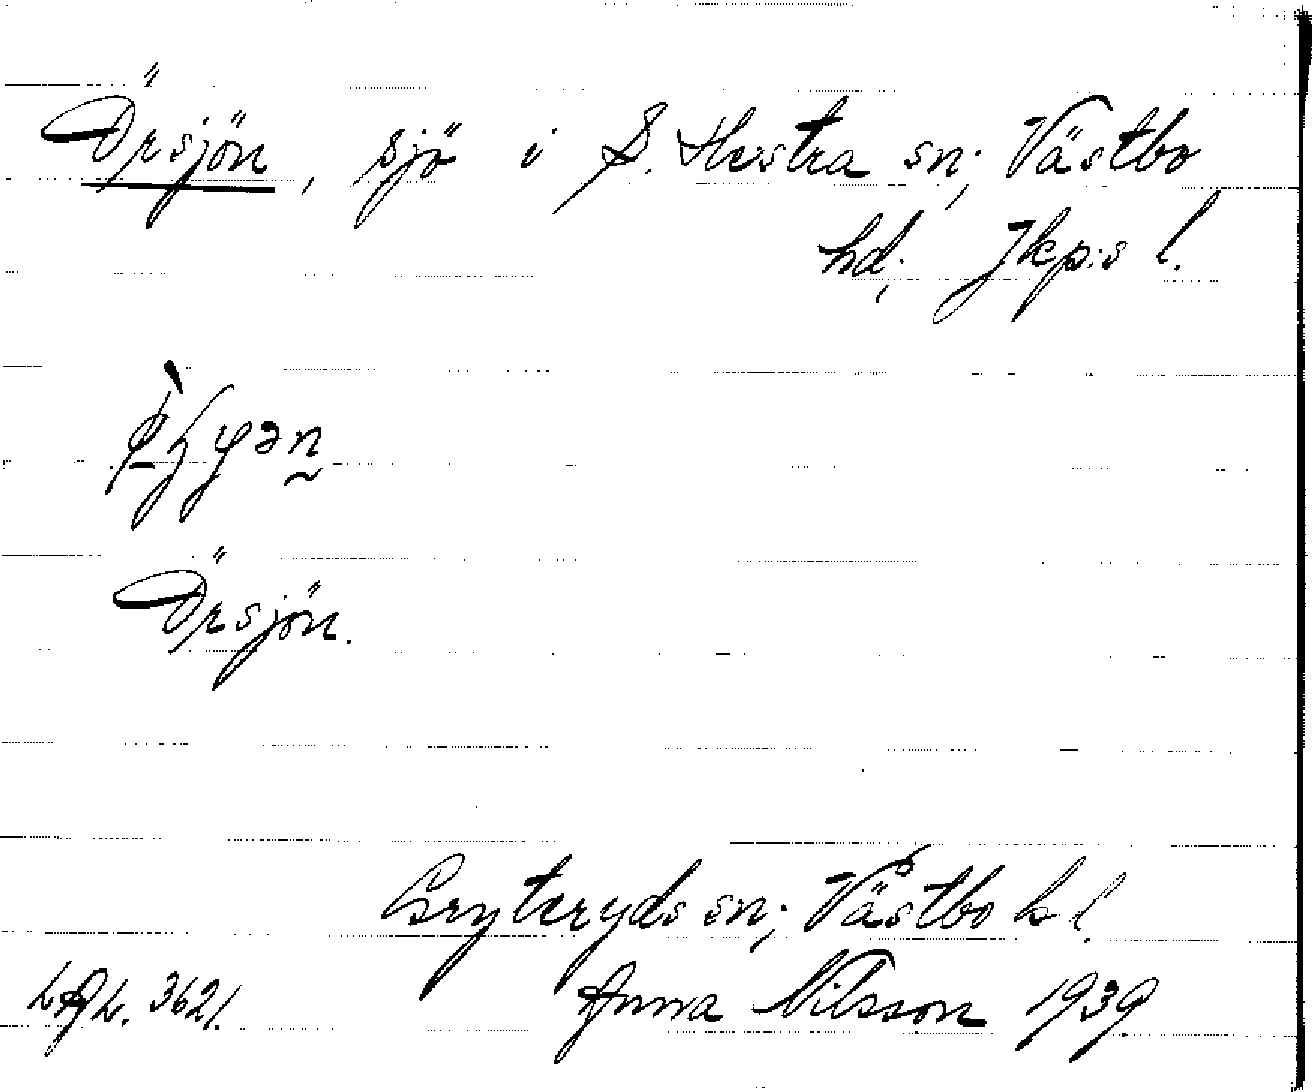 Örsjön, sjö i S. Hestra sn; Västbo
hd; Jkp:s l.
Örsjön.
Gryteryds sn; Västbo hd
Anna Nilsson 1939
3621.